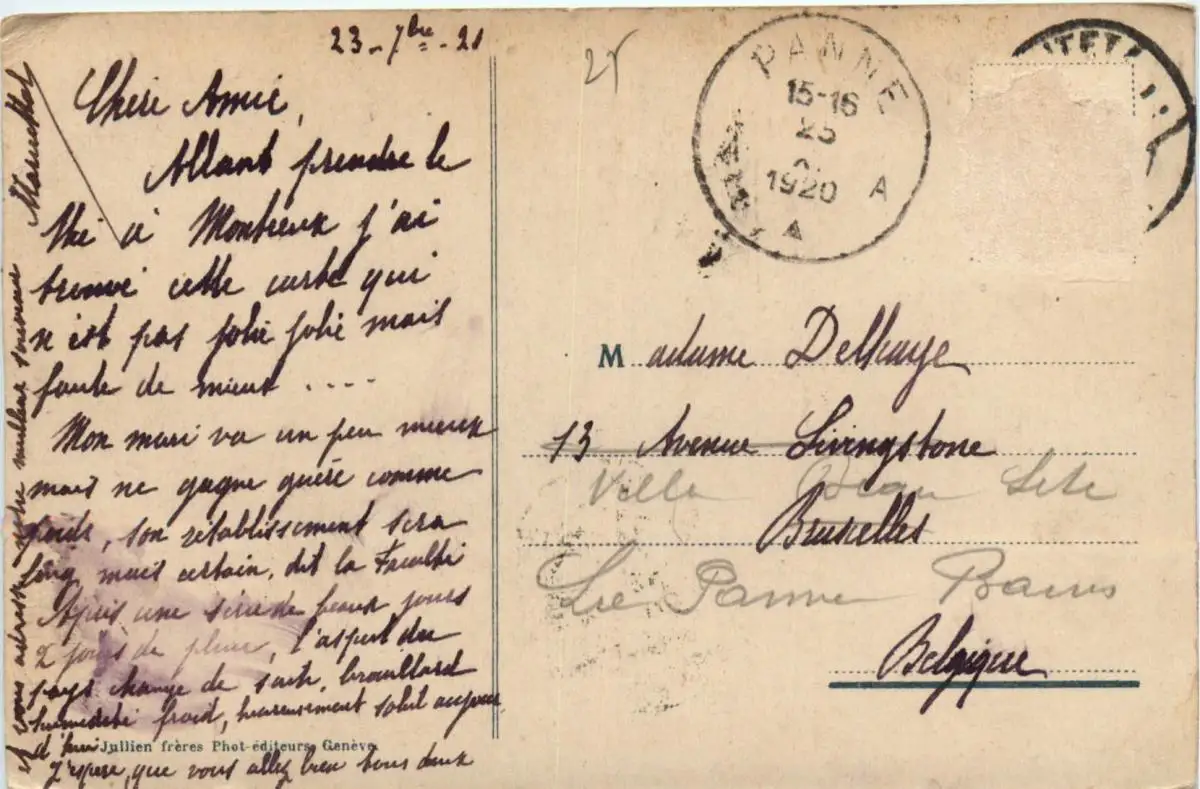 23 - 7bre - 21
Chère Amie,
Allant prendre le
thé à Montreux j'ai
trouvé cette carte qui
n'est pas jolie jolie mais
faute de mieux ....
Mon mari va un peu mieux
mais ne gagne guère comme
poids, son rétablissement sera
long mais certain, dit la Faculté
Après une série de beaux jours
2 jours de pluie, l'aspect du
pays change de suite, brouillard
humidité froid, heureusement soleil aujour
d'hui
J'espère, que vous allez bien tous deux
et vous adresse notre meilleur souvenir
Jullien frères Phot-éditeurs, Genève.
25
PANNE
15-16
25
1920 A
A
Madame Delhaye
13 Avenue Livingstone
Villa Beau Site
Bruxelles
La Panne Bains
Belgique